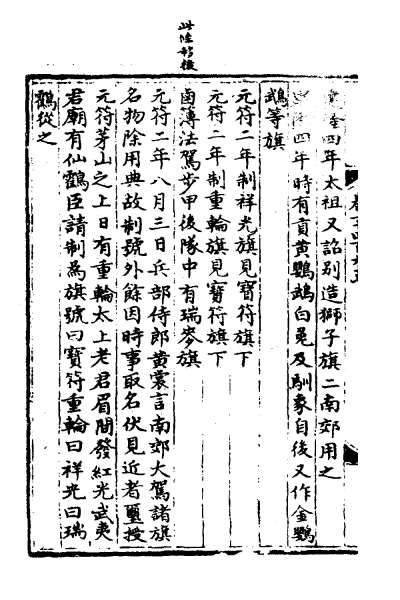 此陸移後
德四年太祖又詔别造獅子旗二南郊用之
四年時有貢黄鸚鵡白兔及馴象自後又作金鸚
鵡等旗
元符二年制祥光旗見寶符旗下
元符二年制重輪旗見寶符旗下
鹵簿法駕步甲後隊中有瑞麥旗
元符二年八月三日兵部侍郎黄裳言南郊大駕諸旗
名物除用典故制號外餘因時事取名伏見近者璽授
元符茅山之上日有重輪太上老君眉間發紅光武夷
君廟有仙鶴臣請制為旗號曰寶符重輪曰祥光曰瑞
鶴從之